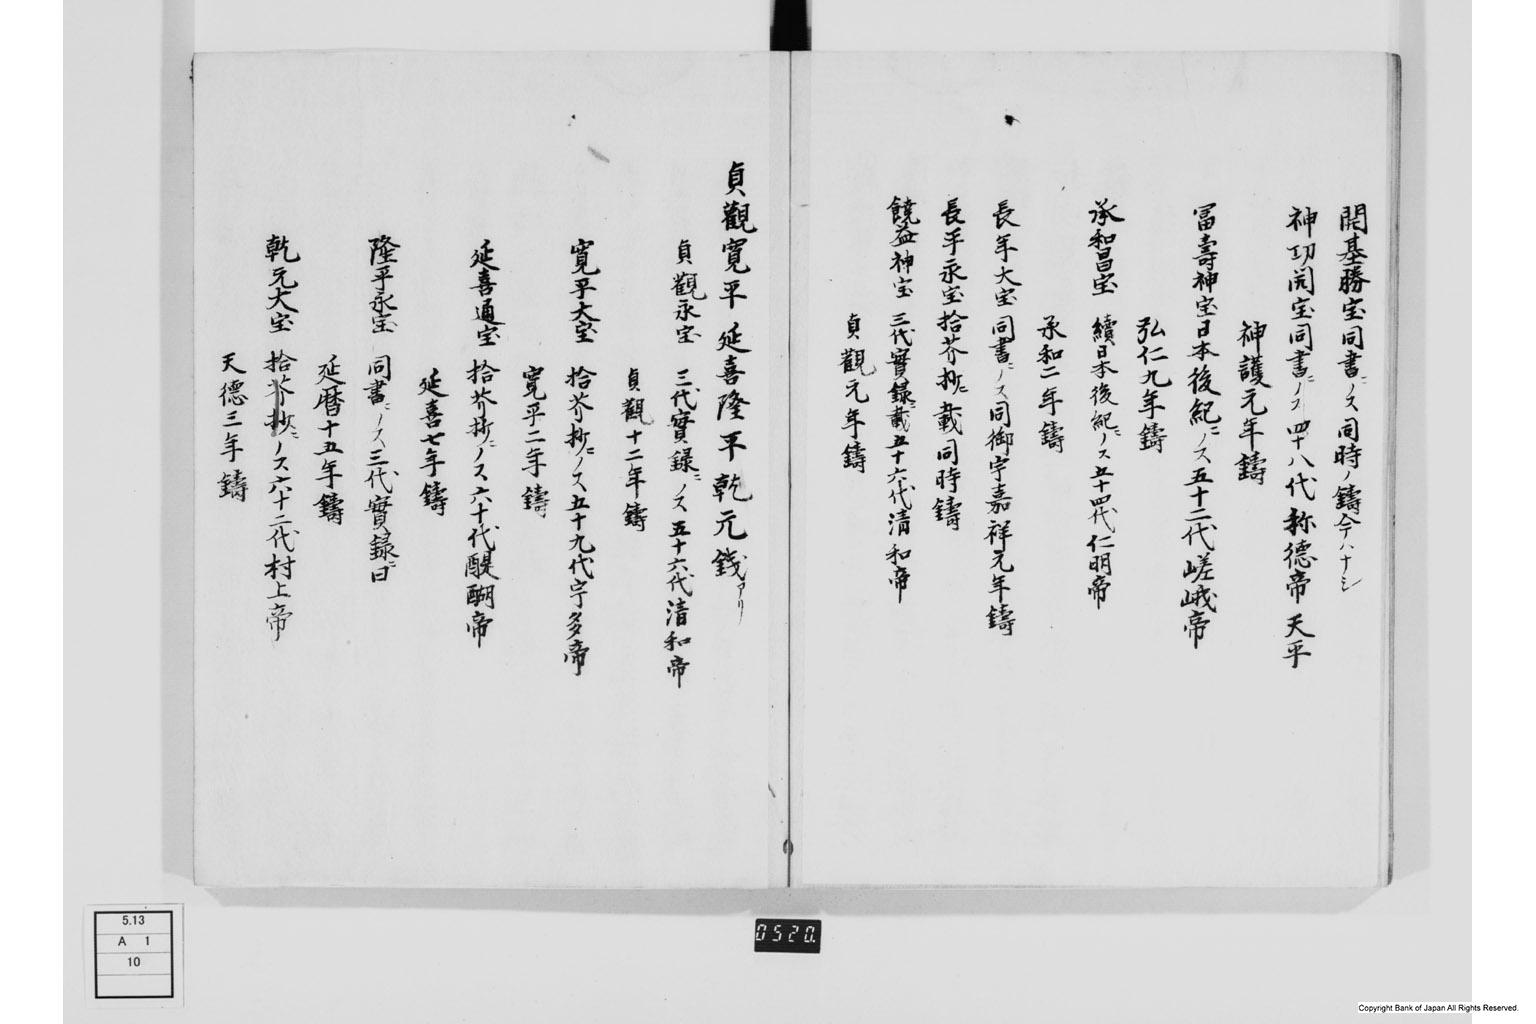 開基勝宝同書ニノス同時ノ鑄今ハナシ
神功開宝同書ニノス四十八代称德帝天平
神護元年鑄
冨壽神宝日本後紀ニノス五十二代嵯峨帝
弘仁九年鑄
承和昌宝 續日本後紀ニノス五十四代仁明帝
承和二年鑄
長年大宝 同書ニノス同御宇嘉祥元年鑄
長平永宝拾芥抄ニ載同時鑄
饒益神宝 三代實録ニ載五十六代清和帝
貞觀元年鑄
貞觀寛平延喜隆平乾元錢アリ
貞觀永宝 三代實録ニノス五十六代清和帝
貞觀十二年鑄
寛平大宝 拾芥抄ニノス五十九代宇多帝
寛平二年鑄
延喜通宝 拾芥抄ニノス六十代醍醐帝
延喜七年鑄
隆平永宝 同書ニノス三代實録ニ曰
延暦十五年鑄
乾元大宝 拾芥抄ニノス六十二代村上帝
天德三年鑄
5.13
A 1
10
0520.
Copyright Bank of Japan All Rights Reserved.